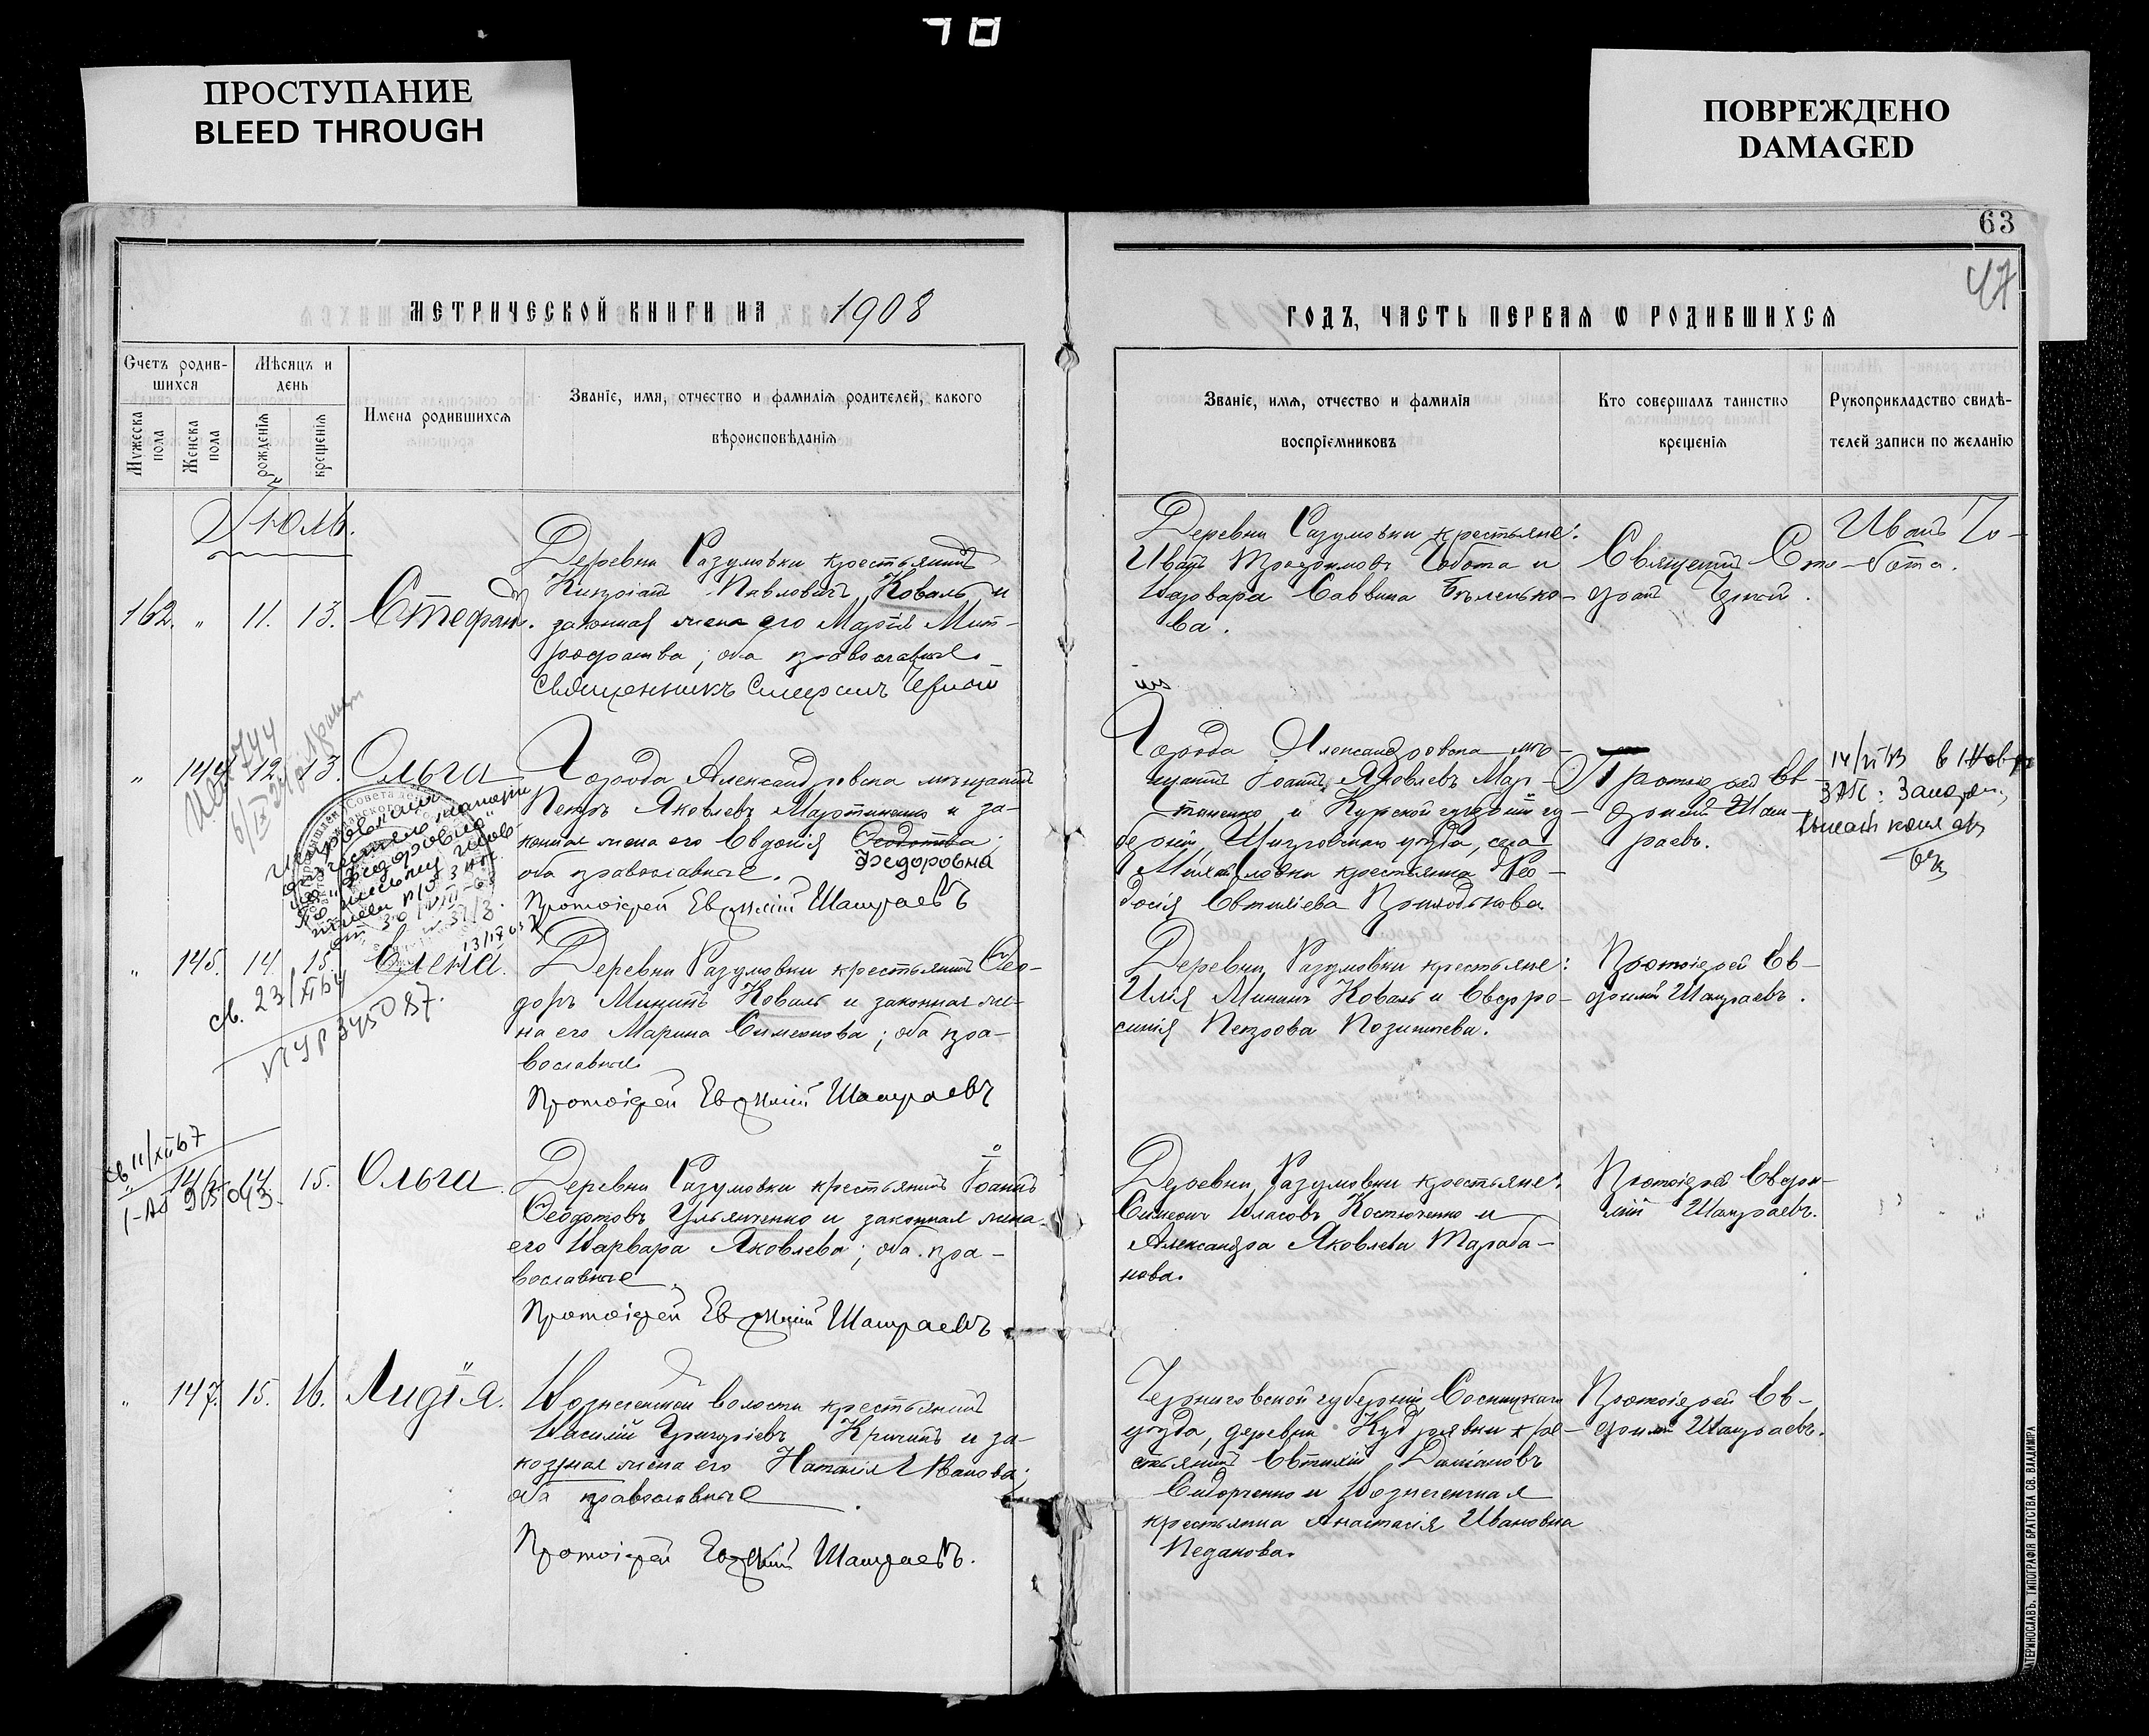 ПРОСТУПАНИЕ
BLEED THROUGH
ПОВРЕЖДЕНО
DAMAGED
63
47
МЕТРИЧЕСКОЙ КНИГИ НА 1908
ГОДЪ, ЧАСТЬ ПЕРВАЯ Ѡ РОДИВШИХСЯ
Счетъ родив-
шихся
Мѣсяцъ и
день
Мужеска
пола
Женска
пола
рожденія
крещенія
Имена родившихся
Званіе, имя, отчество и фамилія родителей, какого
вѣроисповѣданія
Званіе, имя, отчество и фамилія
воспріемниковъ
Кто совершалъ таинство
крещенія
Рукоприкладство свидѣ-
телей записи по желанію
Іюль.
162. " 11. 13. Стефанъ.
Деревни Разумовки крестьянинъ
Кипріанъ Павловичъ Коваль и
законная жена его Марія Мит-
рофанова; оба православные
Священникъ Стефанъ
Деревни Разумовки крестьяне:
Иванъ Трофимовъ Чобота и
Варвара Саввина Бѣленько-
ва.
Священникъ Сте-
фанъ
Иванъ Чо-
бота.
" 144. 12. 13. Ольга
Города Александровска мѣщанинъ
Петръ Яковлевъ Мартыненко и за-
конная жена его Евдокія Ѳедотова;
Федоровна
оба православные.
Протоіерей Евфимій Шатраевъ
Города Александровска мѣ-
щанинъ Іоаннъ Яковлевъ Мар-
тыненко и Курской губерніи гу-
берніи, Щигровскаго уѣзда, села
крестьянка Ѳео-
досія Евтихіева Приходькова.
Протоіерей Ев-
фимій Шат-
раевъ.
Исправлен
отчество матери
на "Федоровна"
" 145. 14. 15. Елена.
Деревни Разумовки крестьянинъ Ѳео-
доръ Мининъ Коваль и законная же-
на его Марина Симеонова; оба пра-
вославные
Протоіерей Евфимій Шатраевъ
Деревни Разумовки крестьяне:
Илія Мининъ Коваль и Евфро-
синія Петрова
Протоіерей Ев-
фимій Шатраевъ.
св. 23/XI 64
ПУР 345087.
св 11/XII 67
" 146. 14. 15. Ольга
Деревни Разумовки крестьянинъ Іоаннъ
Ѳеодотовъ Ульянченко и законная жена
его Варвара Яковлева; оба пра-
вославные
Протоіерей Евфимій Шатраевъ
Деревни Разумовки крестьяне:
Симеонъ Власовъ Костюченко и
Александра Яковлева Тараба-
нова.
Протоіерей Евфи-
мій Шатраевъ.
" 147. 15. 16. Лидія.
Вознесенской волости крестьянинъ
Василій Григоріевъ Кричинъ и за-
конная жена его Наталія Иванова;
оба православные
Протоіерей Евфимій Шатраевъ.
Черниговской губерніи Сосницкаго
уѣзда, деревни Кудрявки кре-
стьянинъ Евтихій Даміановъ
Сидорченко и Вознесенская
крестьянка Анастасія Ивановна
Педанова.
Протоіерей Ев-
фимій Шатраевъ.
ЕКАТЕРИНОСЛАВЪ. ТИПОГРАФІЯ БРАТСТВА СВ. ВЛАДИМІРА